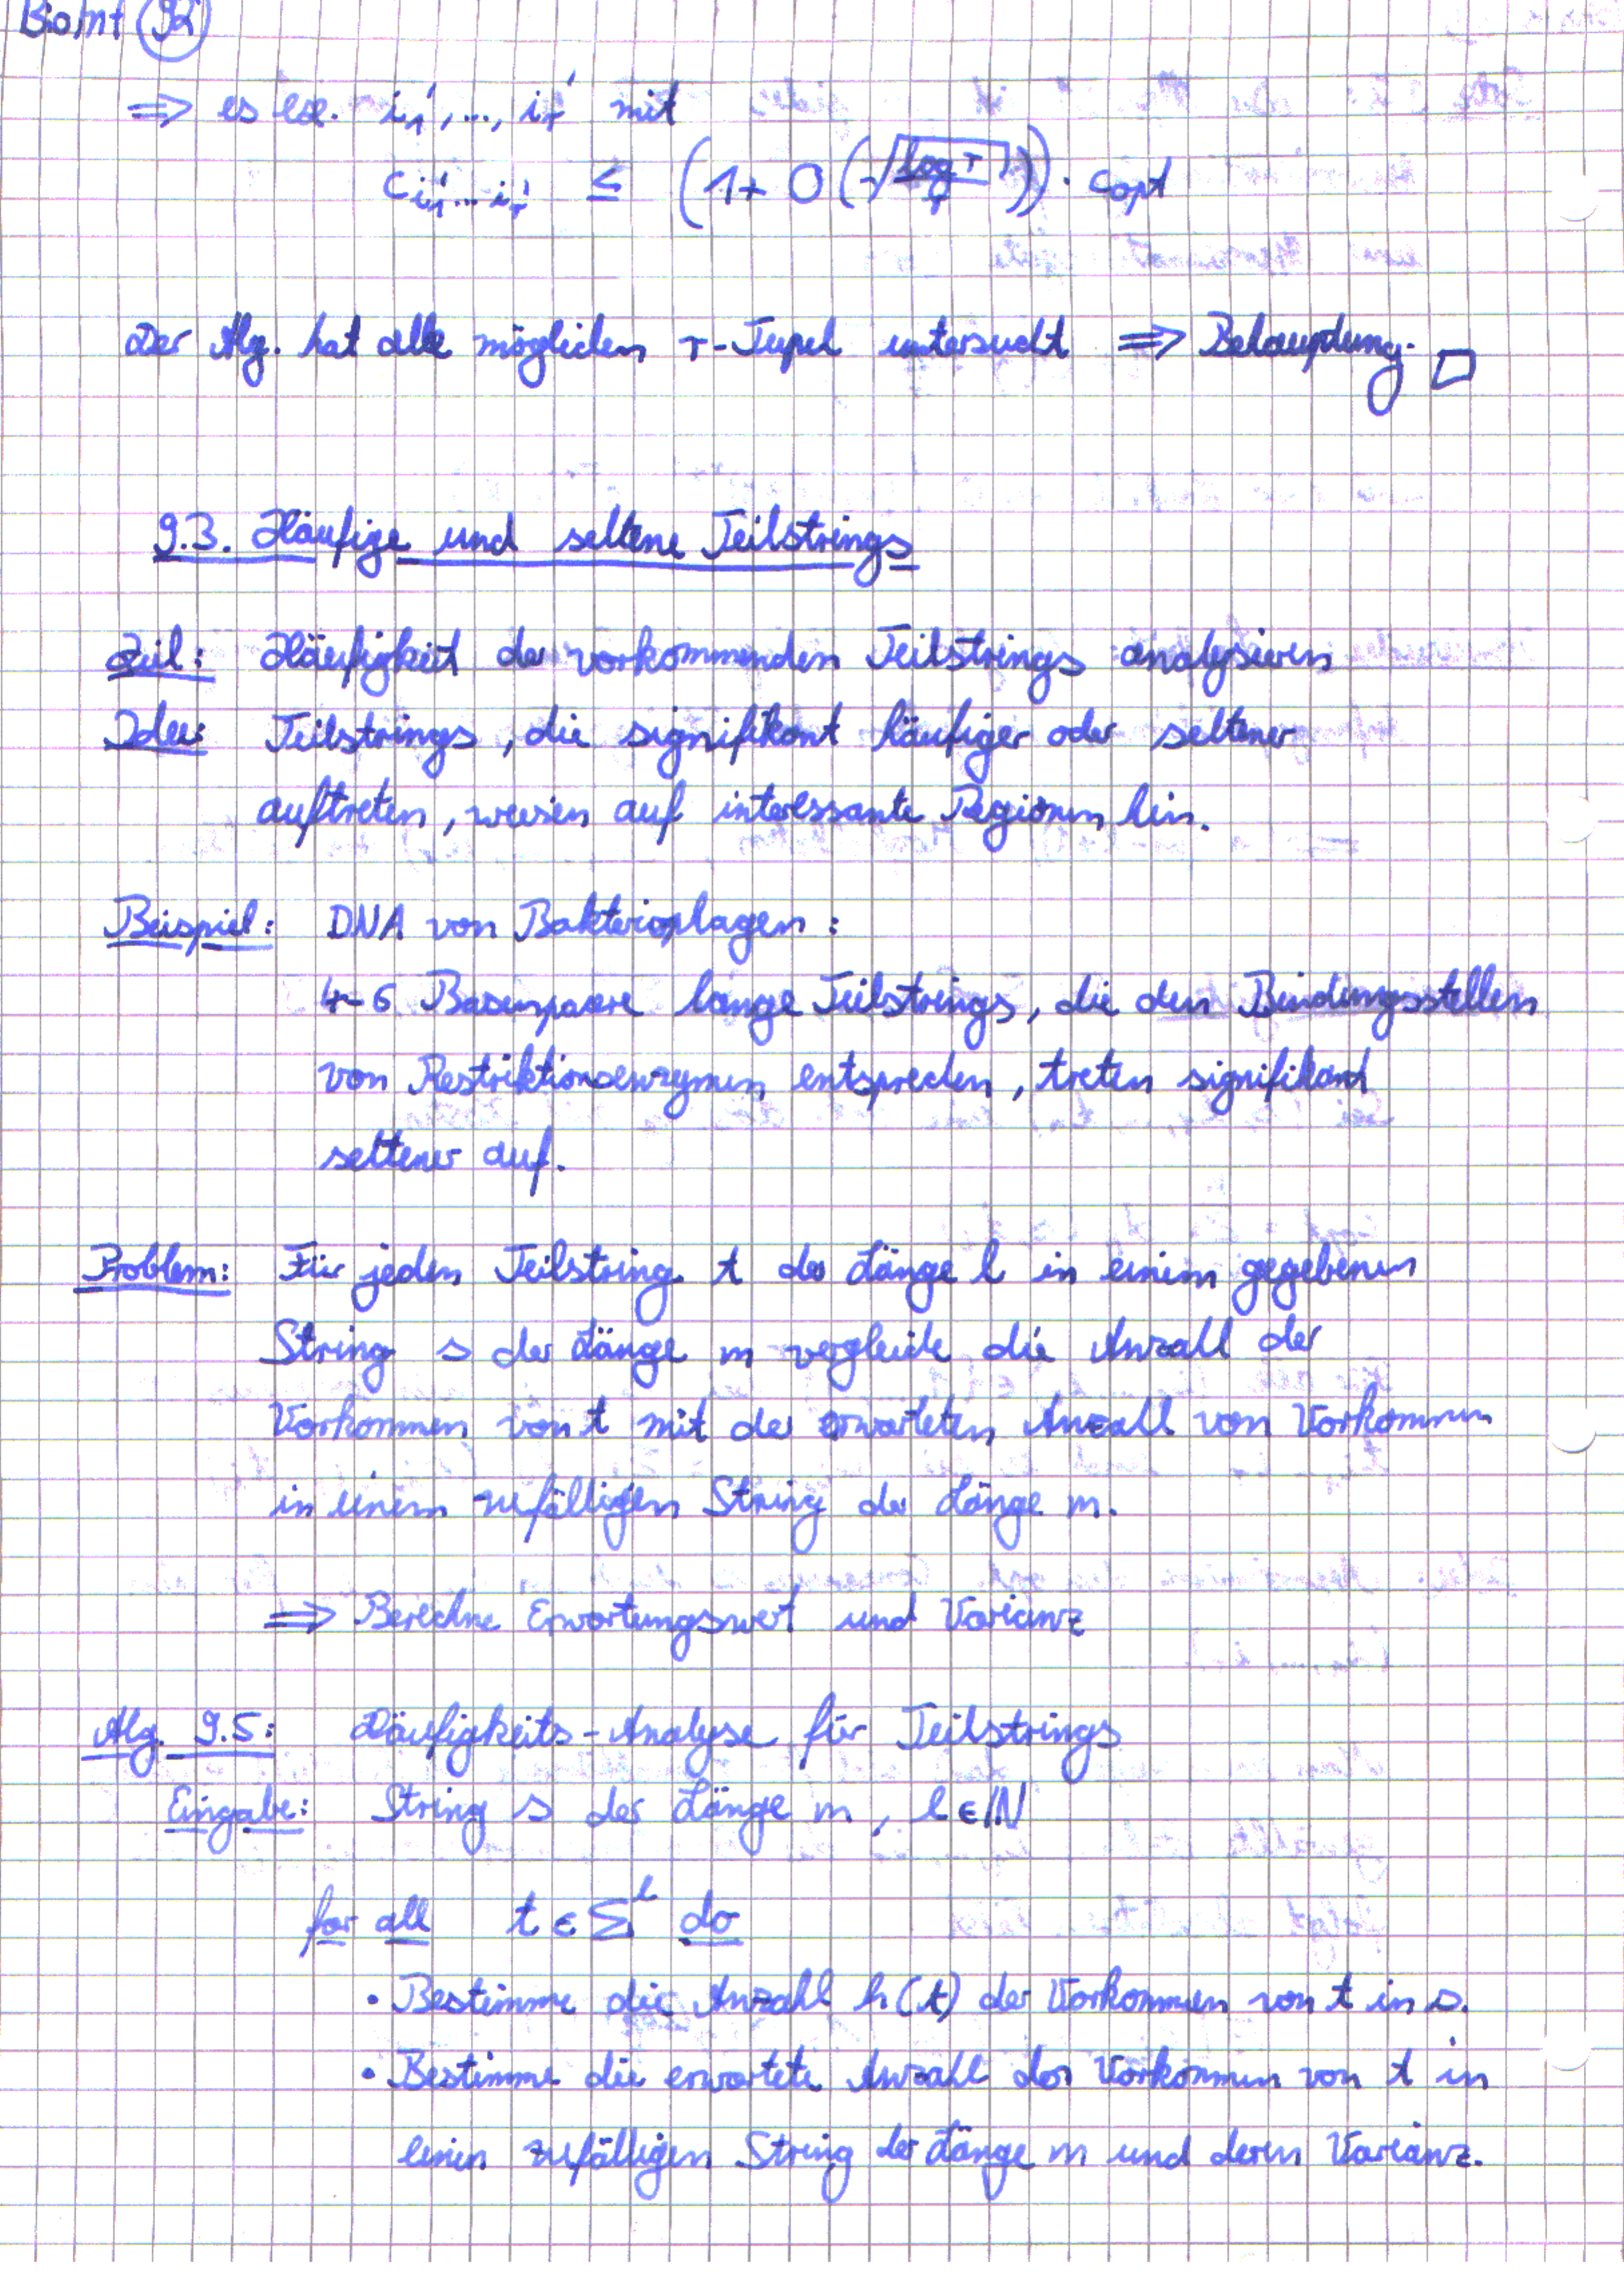 BioInf 92
⇒ es ex. i₁', ..., iᵣ' mit
c_{i₁'...iᵣ'} ≤ (1 + O(√(log r / r))) · c_opt
Der Alg. hat alle möglichen r-Tupel untersucht ⇒ Behauptung. □
9.3. Häufige und seltene Teilstrings
Ziel: Häufigkeit der vorkommenden Teilstrings analysieren
Idee: Teilstrings, die signifikant häufiger oder seltener
auftreten, weisen auf interessante Regionen hin.
Beispiel: DNA von Bakteriophagen:
4-6 Basenpaare lange Teilstrings, die den Bindungsstellen
von Restriktionsenzymen entsprechen, treten signifikant
seltener auf.
Problem: Für jeden Teilstring t der Länge l in einem gegebenen
String s der Länge m vergleiche die Anzahl der
Vorkommen von t mit der erwarteten Anzahl von Vorkommen
in einem zufälligen String der Länge m.
⇒ Berechne Erwartungswert und Varianz
Alg. 9.5: Häufigkeits-Analyse für Teilstrings
Eingabe: String s der Länge m, l ∈ ℕ
for all t ∈ Σˡ do
• Bestimme die Anzahl h(t) der Vorkommen von t in s.
• Bestimme die erwartete Anzahl der Vorkommen von t in
einen zufälligen String der Länge m und deren Varianz.